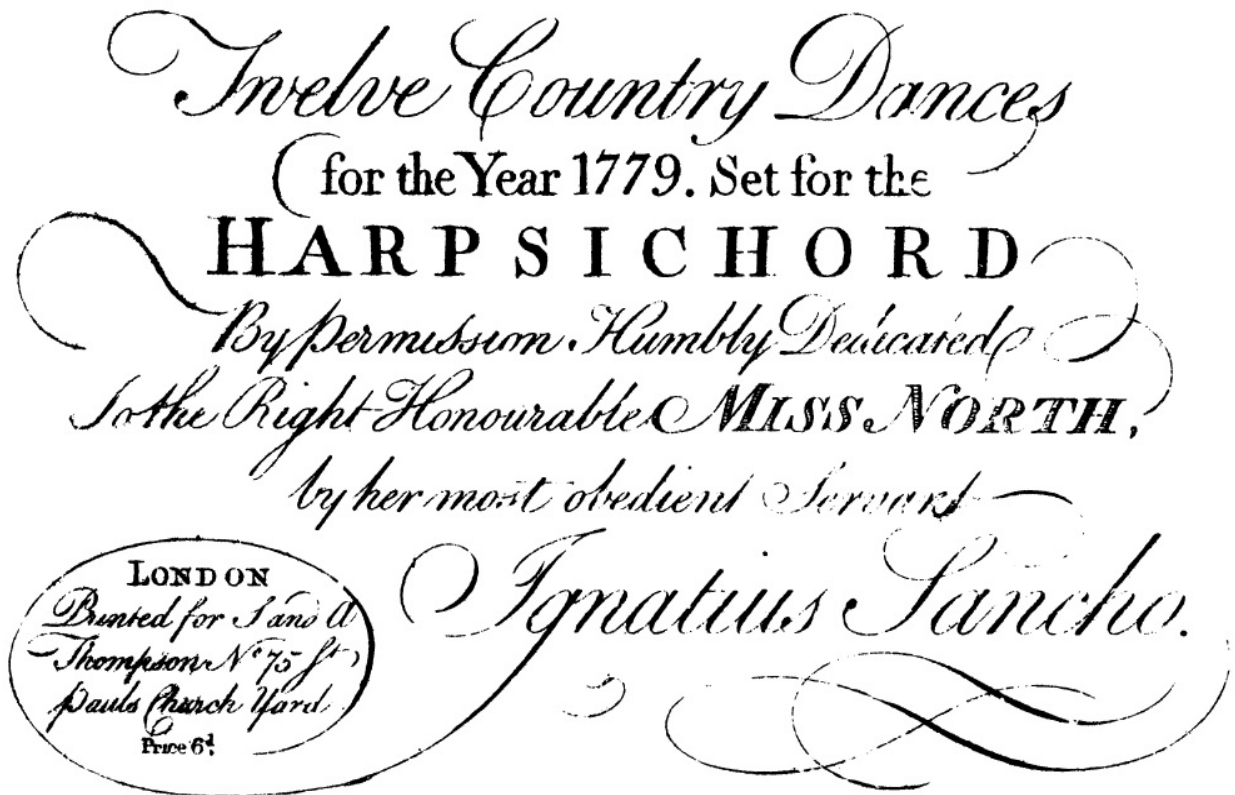 Twelve Country Dances
for the Year 1779. Set for the
HARPSICHORD
By permission Humbly Dedicated
To the Right Honourable MISS NORTH,
by her most obedient Servant
Ignatius Sancho.
LONDON
Printed for S and A
Thompson No 75 St
Pauls Church Yard
Price 6d.